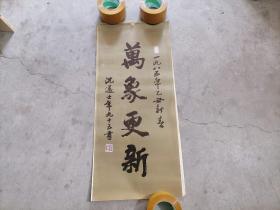 一九八五年乙丑新春
萬象更新
沈邁士年九十五書